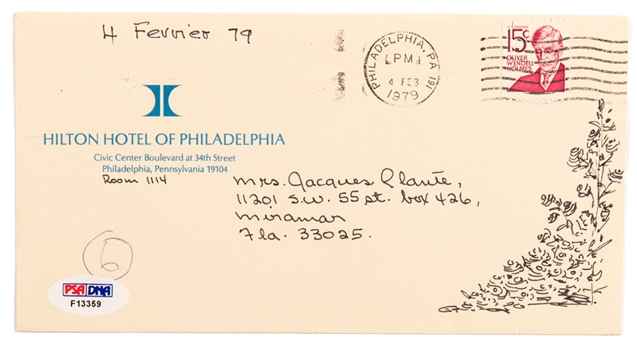 4 Fevrier 79
PHILADELPHIA, PA 191
PM
4 FEB
1979
15¢
OLIVER
WENDELL
HOLMES
HILTON HOTEL OF PHILADELPHIA
Civic Center Boulevard at 34th Street
Philadelphia, Pennsylvania 19104
Room 1114
Mrs. Jacques Plante,
11201 S.W. 55 st. box 426,
Miramar
Fla. 33025.
6
PSA DNA
F13359